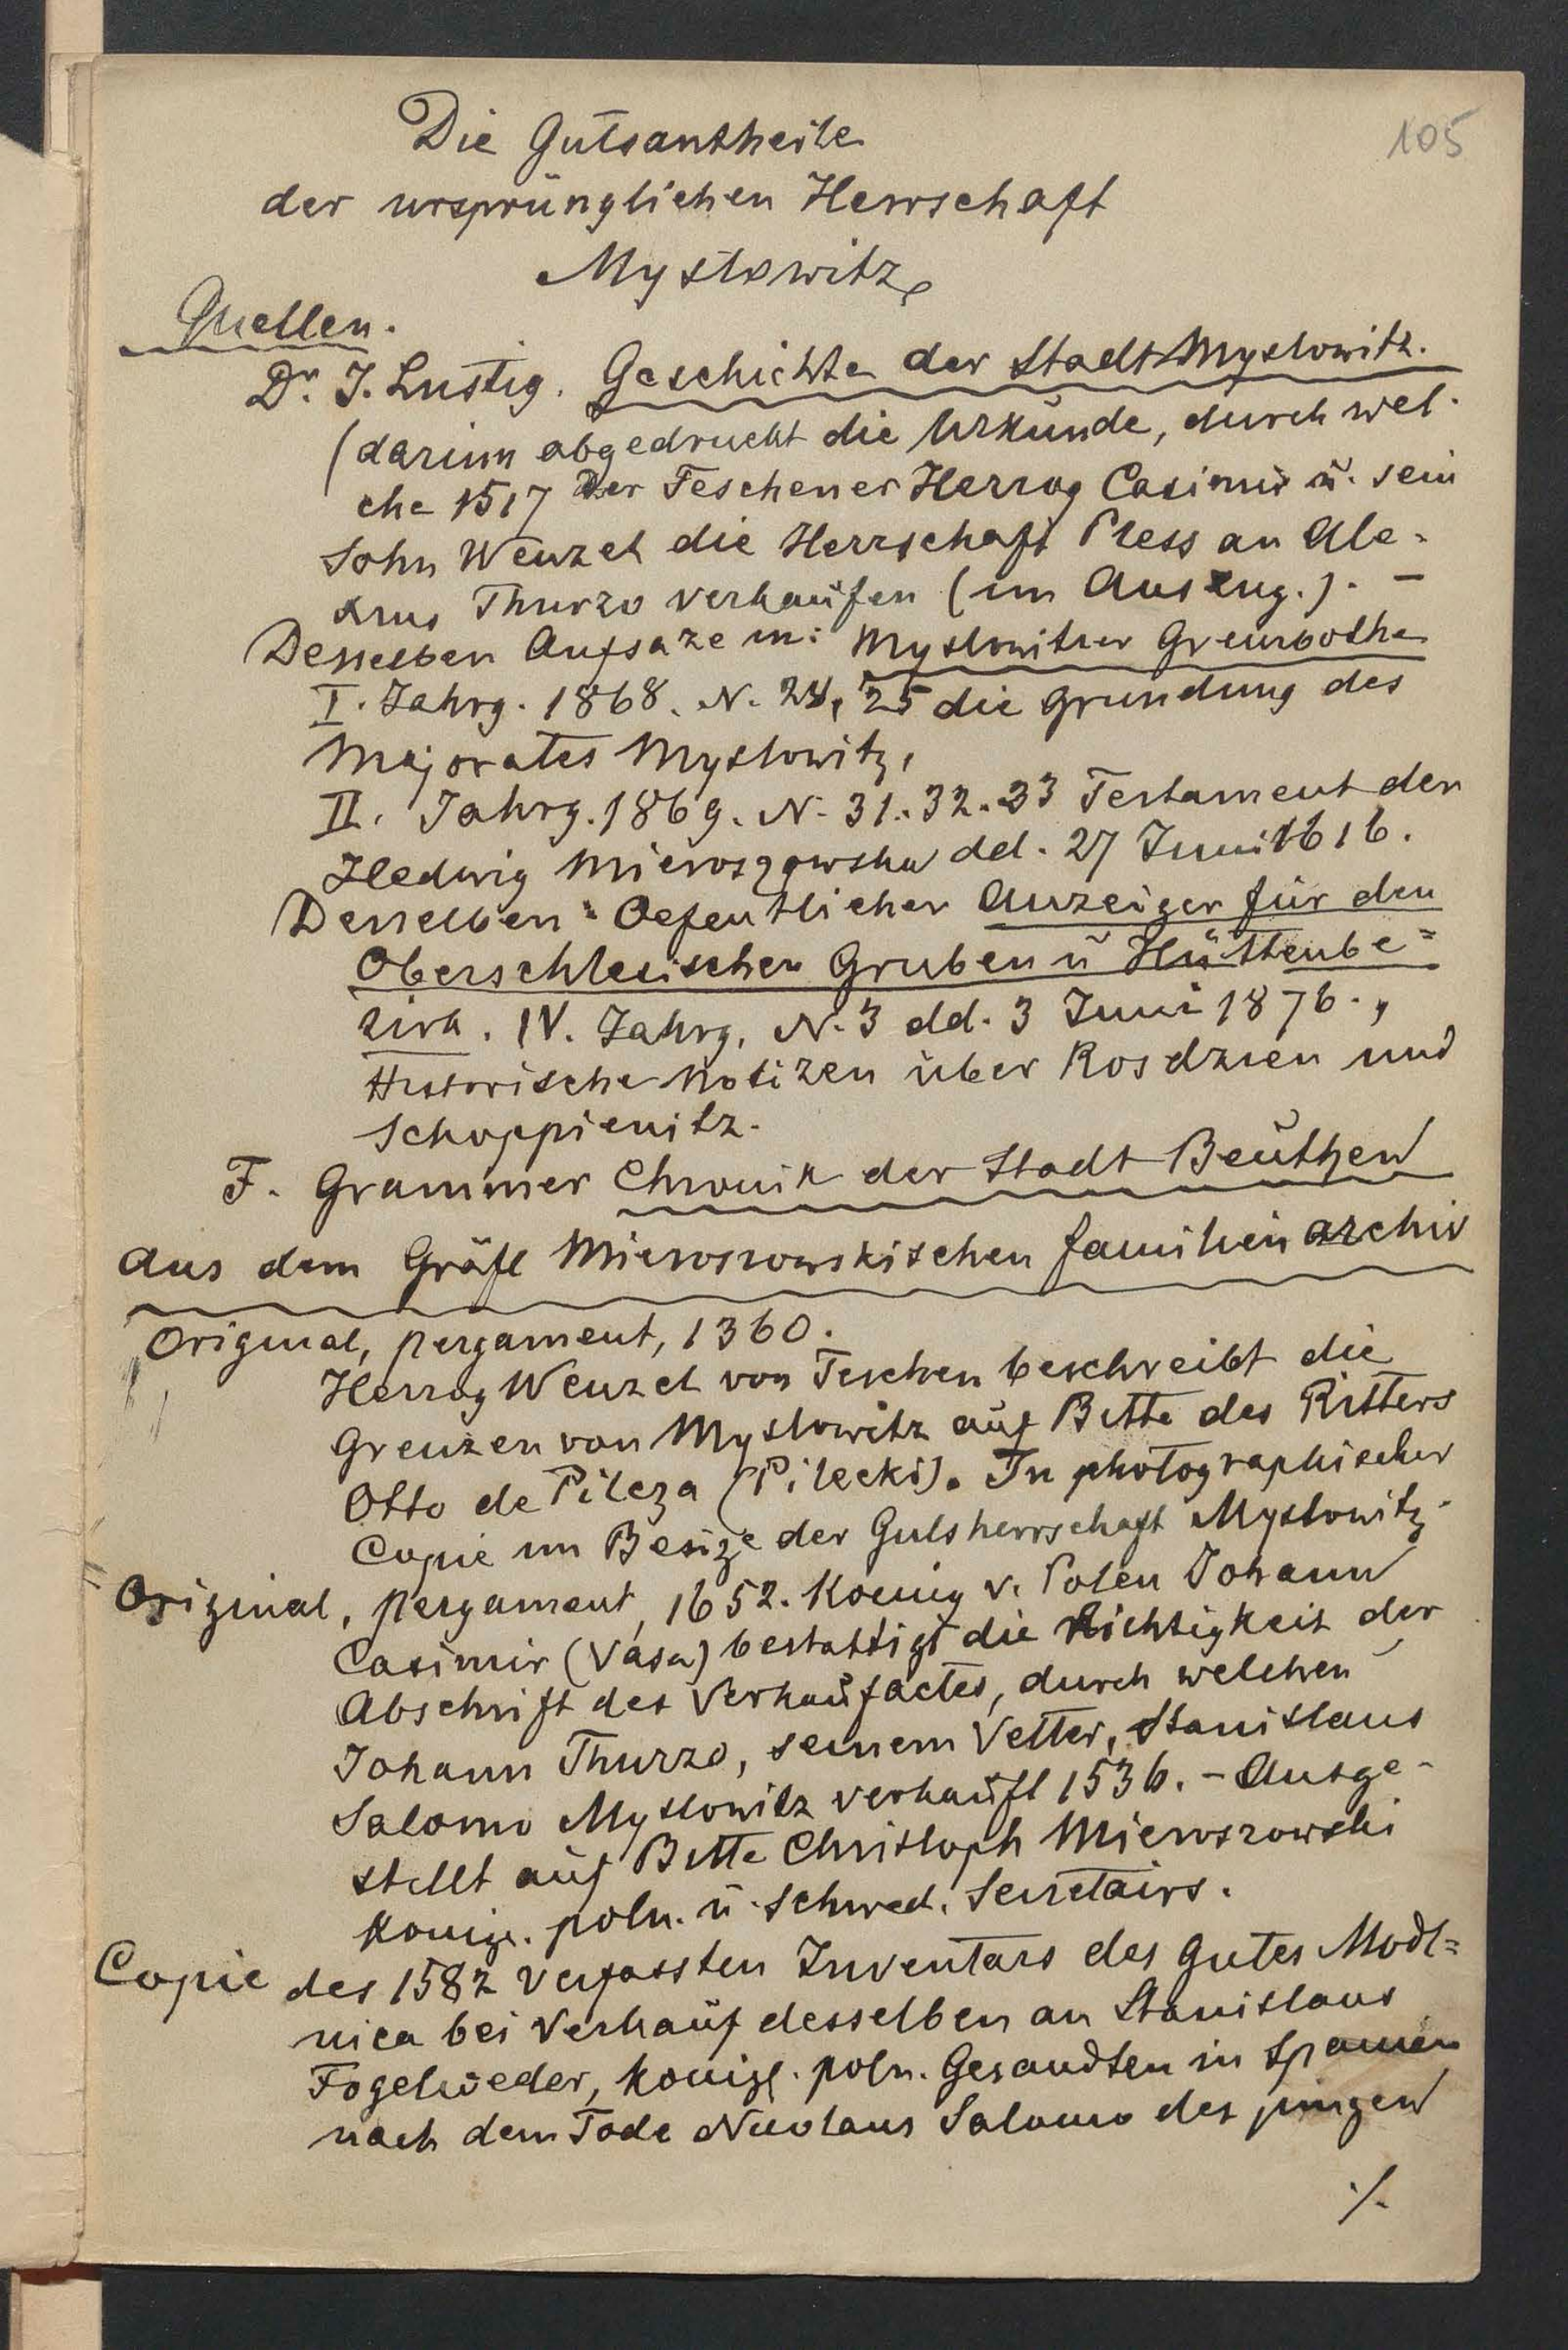 105
Die Gutsantheile
der ursprünglichen Herrschaft
Myslowitz
Quellen.
Dr. J. Lustig. Geschichte der Stadt Myslowitz.
(darinn abgedruckt die Urkunde, durch wel-
che 1517 der Teschener Herzog Casimir ü. sein
Sohn Wenzel die Herrschaft Pless an Ale-
xius Thurzo verkaufen (im Auszug.). –
Desselben Aufsäze in: Myslowitzer Grenzbothe
I. Jahrg. 1868. N. 24, 25 die Gründung des
Majorates Myslowitz,
II. Jahrg. 1869. N. 31. 32. 33 Testament der
Hedwig Mieroszowska dd. 27 Juni 1616.
Desselben: Oefentlicher Anzeiger für den
Oberschlesischen Gruben ü Hüttenbe=
zirk. IV. Jahrg. N. 3 dd. 3 Juni 1876. „
Historische Notizen über Rosdzien und
Schoppienitz.
F. Grammer Chronik der Stadt Beuthen
Aus dem Gräfl Mieroszowskischen Familienarchiv
Original, Pergament, 1360.
Herzog Wenzel von Teschen beschreibt die
Grenzen von Myslowitz auf Bitte des Ritters
Otto de Pilcza (Pilecki). In photographischer
Copie im Besize der Gutsherrschaft Myslowitz.
Original, Pergament, 1652. Koenig v. Polen Johann
Casimir (Vasa) bestattigt die Richtigkeit der
Abschrift des Verkaufactes, durch welchen
Johann Thurzo, seinem Vetter, Stanislaus
Salomo Myslowitz verkauft 1536. – Ausge-
stellt auf Bitte Christoph Mieroszowski
Königl. poln. ü. schwed. Secretairs.
Copie des 1582 verfassten Inventars des Gutes Modl=
nica bei Verkauf desselben an Stanislaus
Fogelweder, königl. poln. Gesandten in Spanien
nach dem Tode Nicolaus Salomo des jüngen
./.